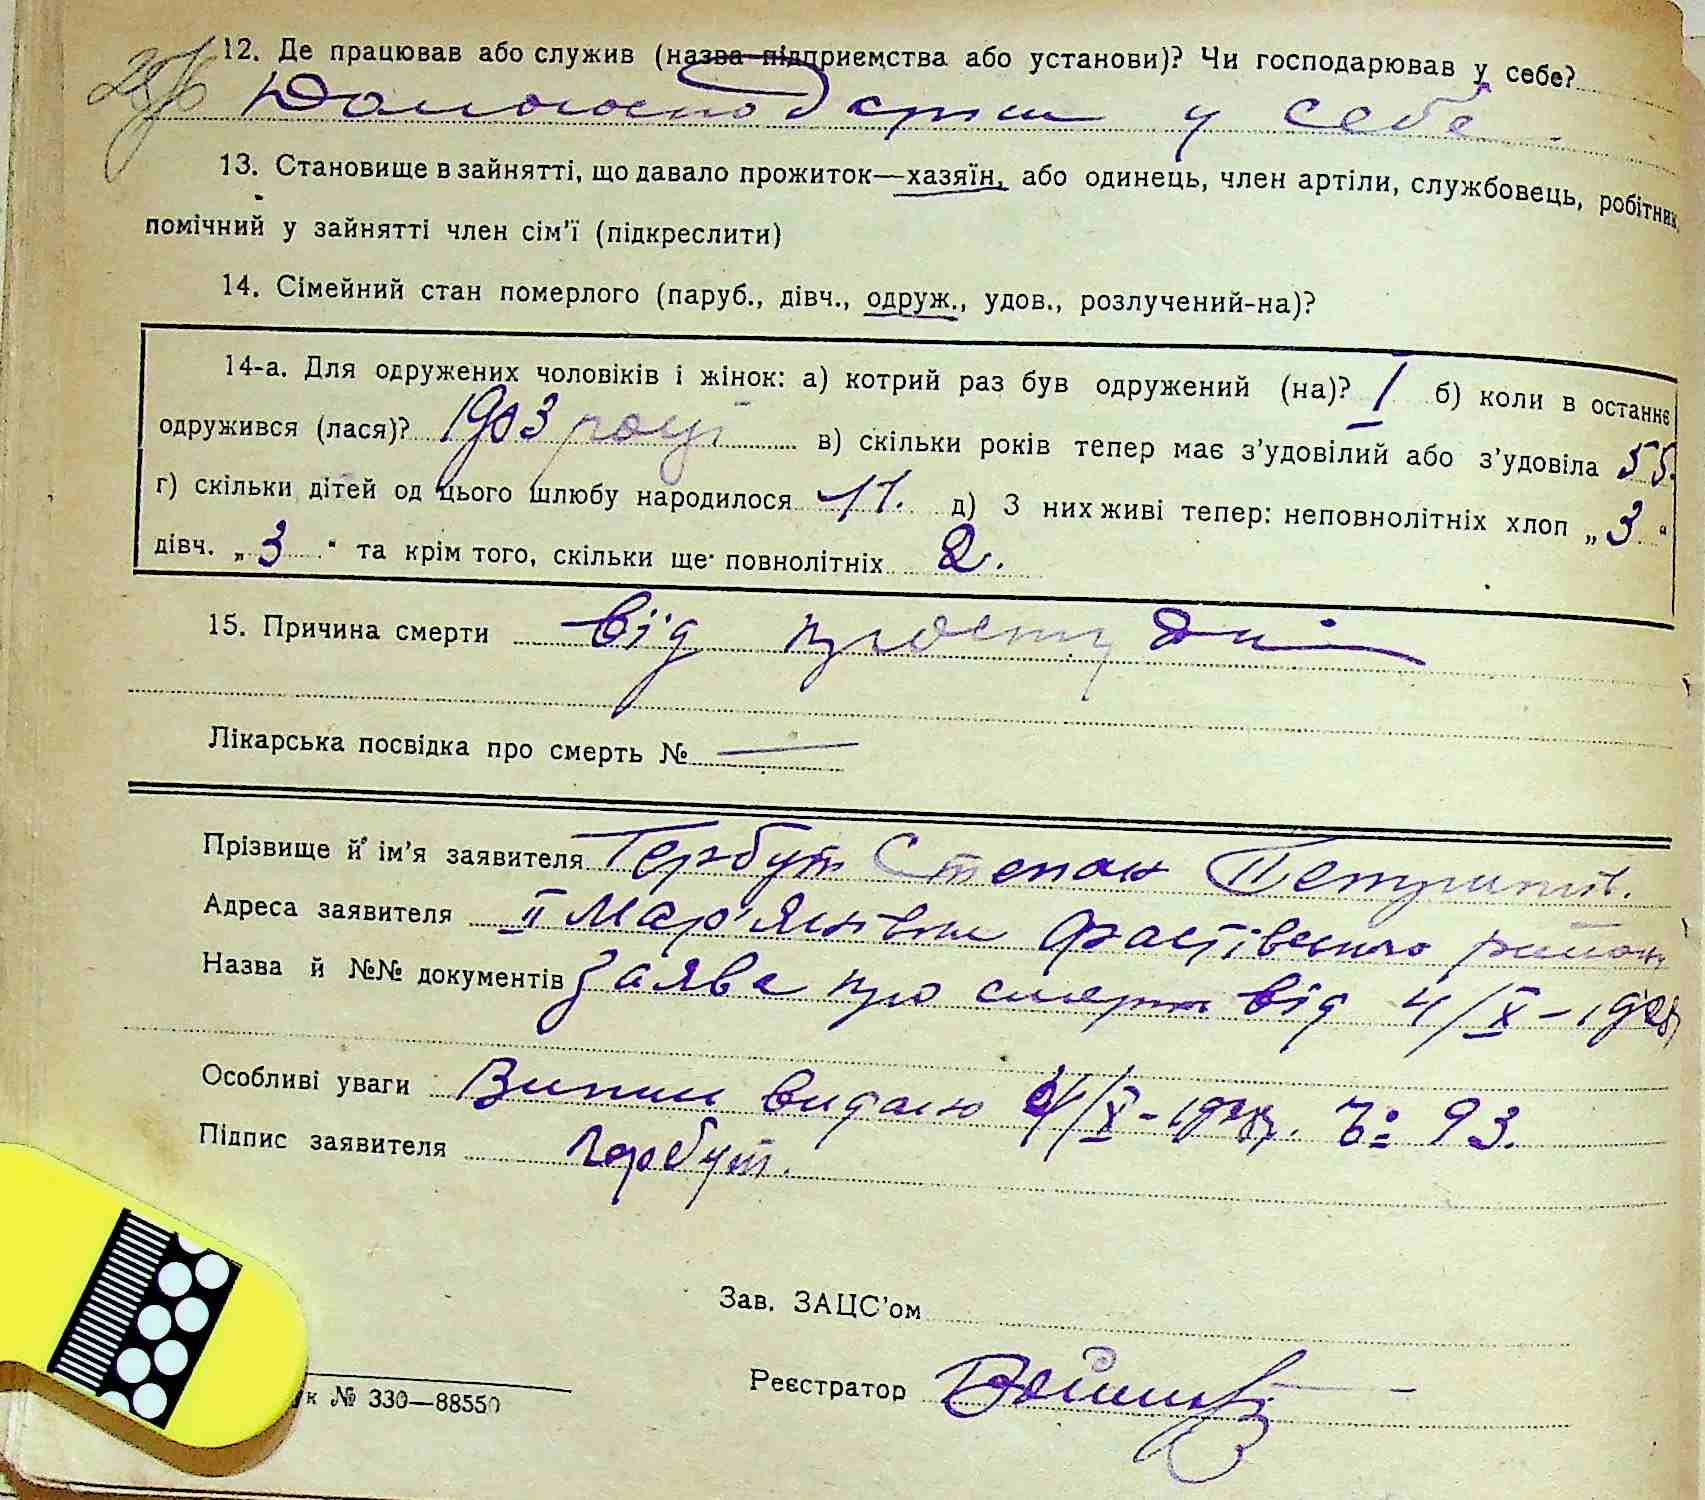 12. Де працював або служив (назва підприємства або установи)? Чи господарював у себе?
у себе.
13. Становище в зайнятті, що давало прожиток—хазяїн, або одинець, член артіли, службовець, робітник,
помічний у зайнятті член сім'ї (підкреслити)
14. Сімейний стан померлого (паруб., дівч., одруж., удов., розлучений-на)?
14-а. Для одружених чоловіків і жінок: а) котрий раз був одружений (на)? I б) коли в останнє
одружився (лася)? 1903 році в) скільки років тепер має з'удовілий або з'удовіла 55.
г) скільки дітей од цього шлюбу народилося 11. д) З них живі тепер: неповнолітніх хлоп „3“
дівч. „3“ та крім того, скільки ще повнолітніх 2.
15. Причина смерти від простудни
Лікарська посвідка про смерть № —
Прізвище й ім'я заявителя Гербут Степан
Адреса заявителя II Мар'янівка Фастівського району
Назва й №№ документів Заява про смерть від 4/X-1928
Особливі уваги Випис видано 4/X-1928 № 93.
Підпис заявителя Гербут.
Зав. ЗАЦС'ом
Реєстратор
к № 330—88550